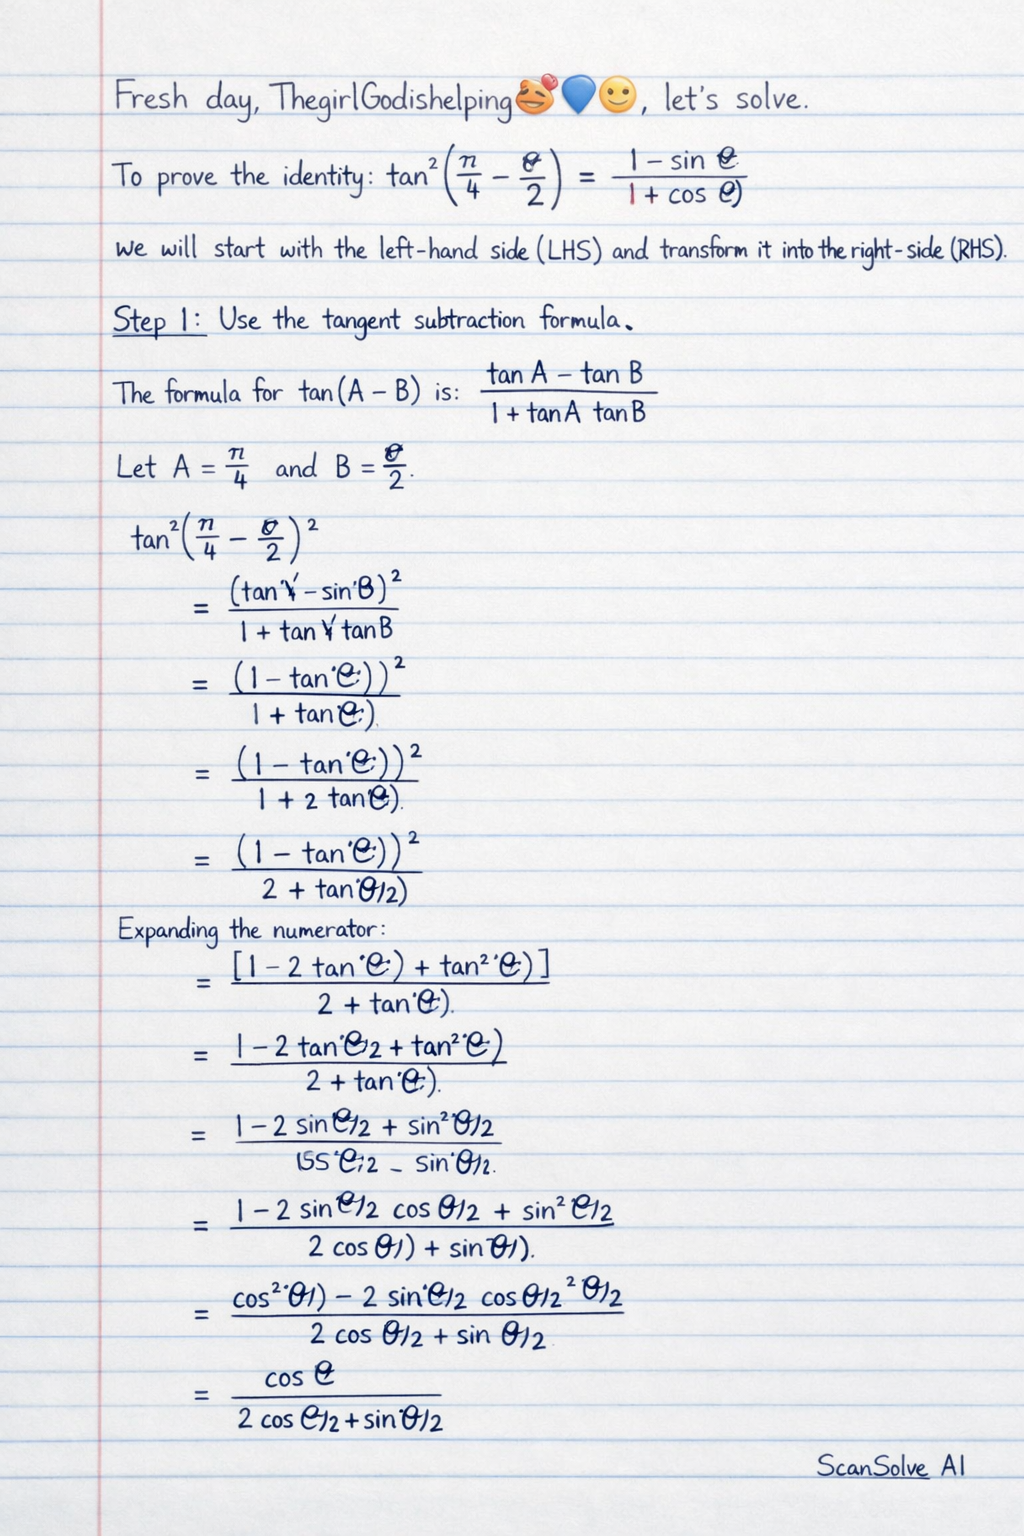 Fresh day, ThegirlGodishelping🥰💙🙂, let's solve.
To prove the identity: tan²(π/4 − θ/2) = (1 − sin θ)/(1 + cos θ)
we will start with the left-hand side (LHS) and transform it into the right-side (RHS).
Step 1: Use the tangent subtraction formula.
The formula for tan(A − B) is: (tan A − tan B)/(1 + tan A tan B)
Let A = π/4 and B = θ/2.
tan²(π/4 − θ/2)²
= (tan − sin'B)²/1 + tan tanB
= (1 − tan'θ))²/1 + tanθ)
= (1 − tan'θ))²/1 + 2 tanθ).
= (1 − tan'θ))²/2 + tan'θ/2)
Expanding the numerator:
= [1 − 2 tan'θ) + tan²'θ)]/2 + tan'θ).
= 1 − 2 tan'θ2 + tan²'θ)/2 + tan'θ).
= 1 − 2 sinθ/2 + sin²'θ/2 / − sin'θ/2.
= 1 − 2 sinθ/2 cos θ/2 + sin² θ/2 / 2 cos θ/) + sin θ/).
= cos²'θ/) − 2 sin'θ/2 cos θ/2 ² θ/2 / 2 cos θ/2 + sin θ/2
= cos θ / 2 cos θ/2 + sin'θ/2
ScanSolve AI